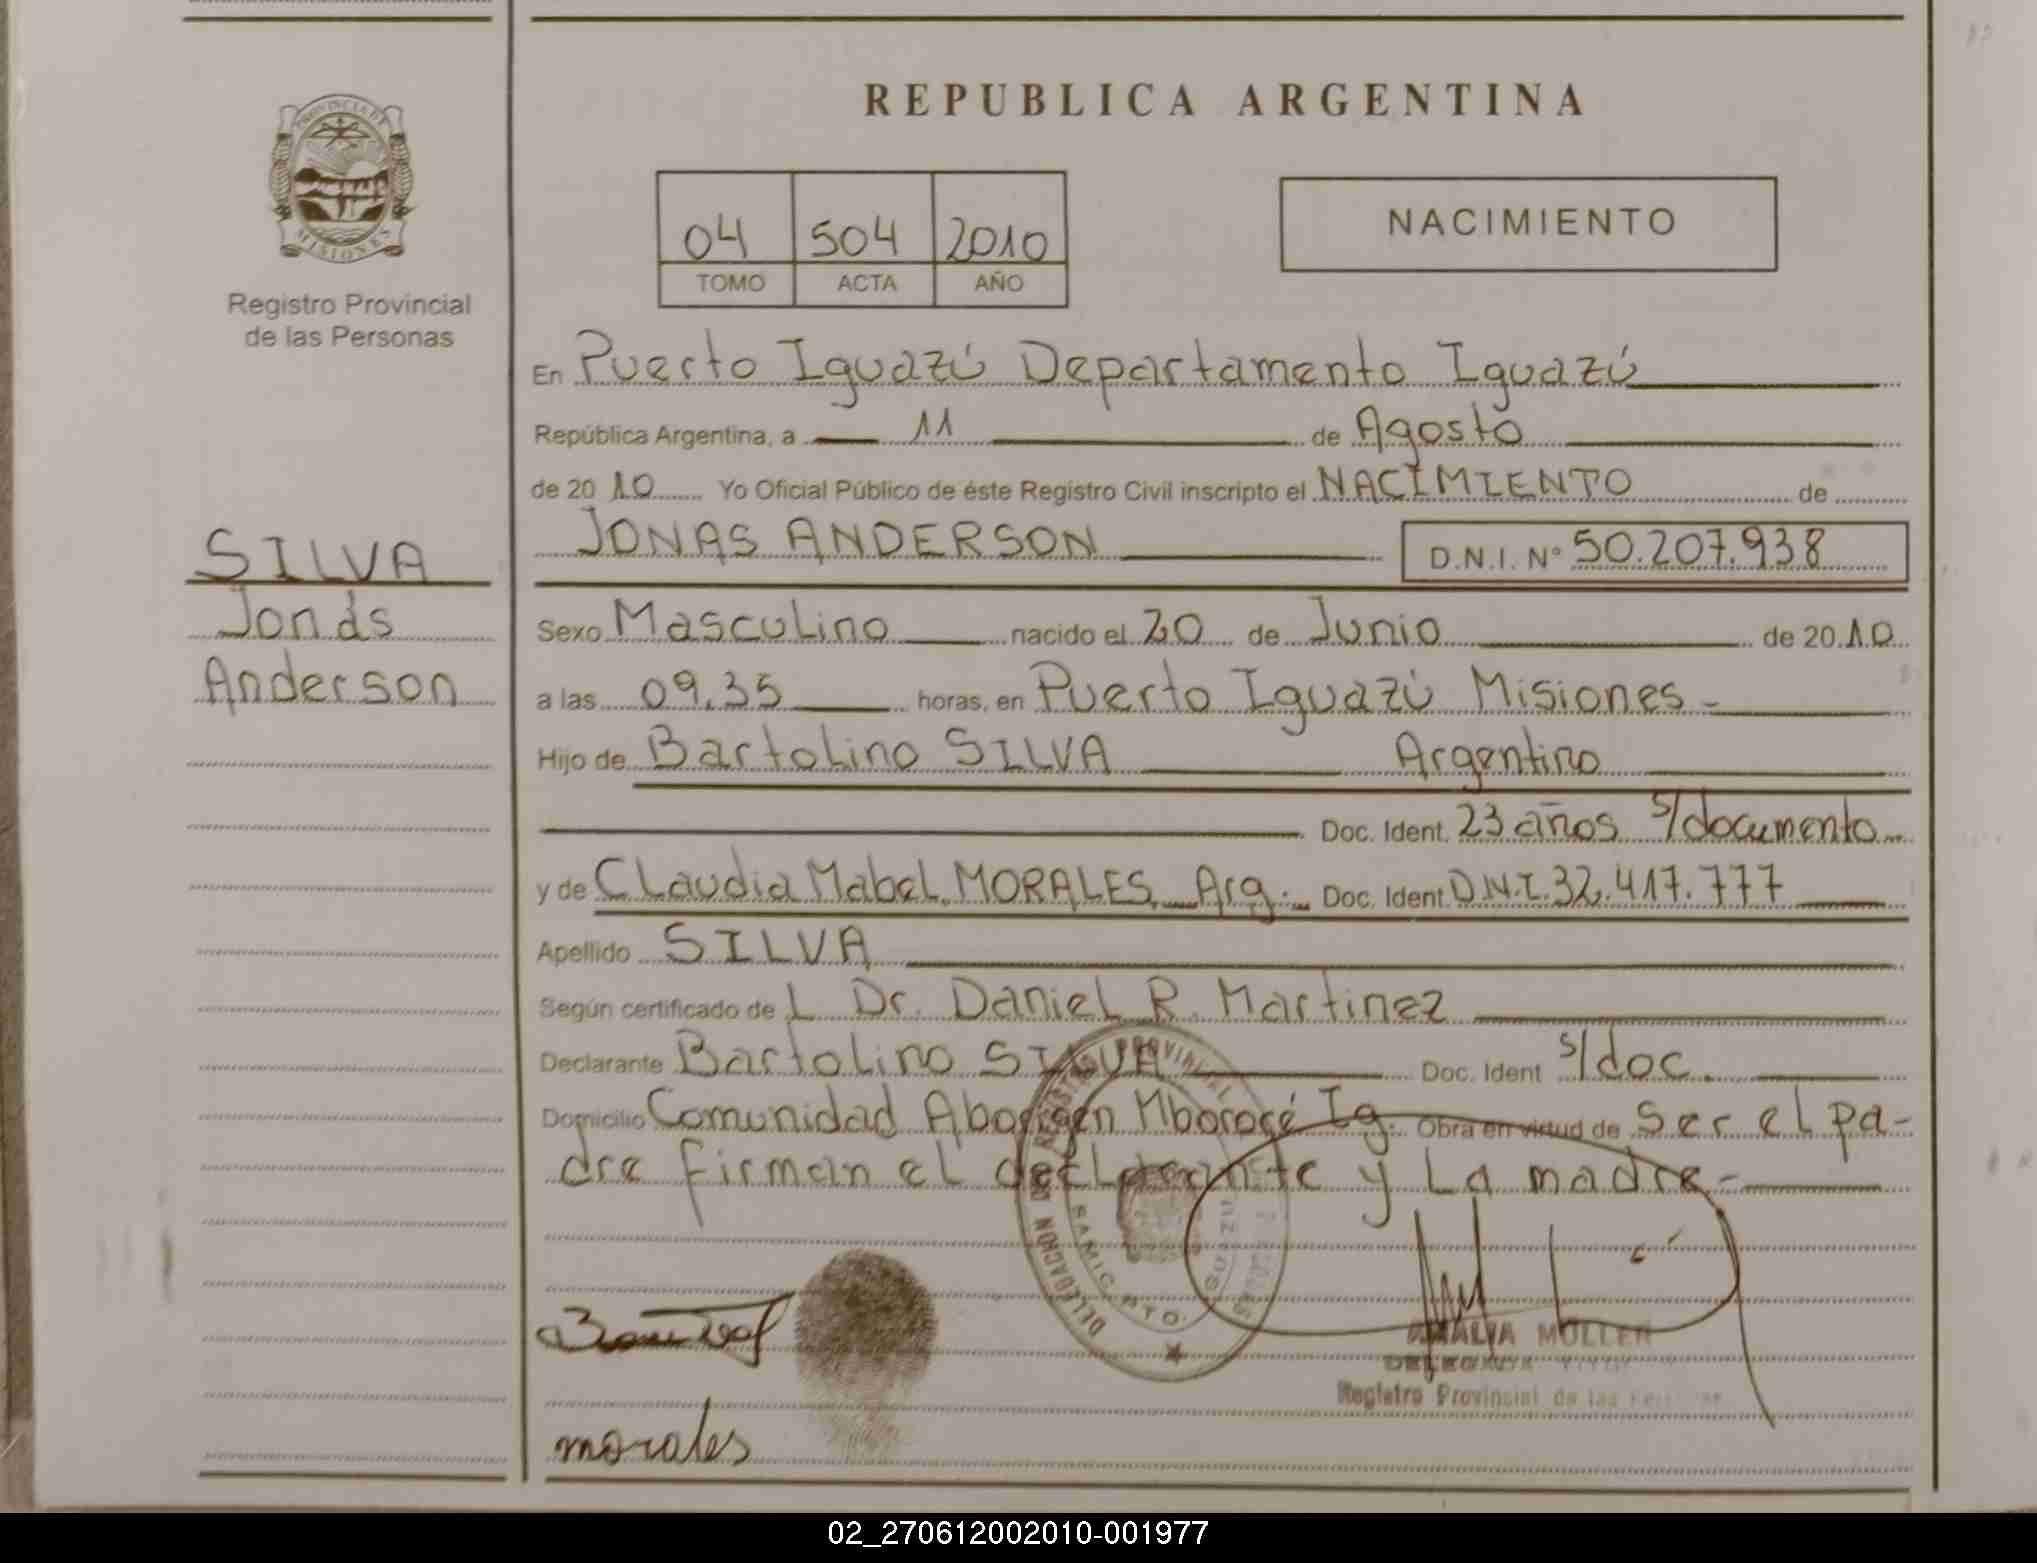 REPUBLICA ARGENTINA
PROVINCIA DE
MISIONES
Registro Provincial
de las Personas
04 504 2010
TOMO ACTA AÑO
NACIMIENTO
En Puerto Iguazú Departamento Iguazú
República Argentina, a 11 de Agosto
de 2010 Yo Oficial Público de éste Registro Civil inscripto el NACIMIENTO de
JONAS ANDERSON D.N.I. Nº 50.207.938
SILVA
Jonás
Anderson
Sexo Masculino nacido el 20 de Junio de 2010
a las 09.35 horas, en Puerto Iguazú Misiones -
Hijo de Bartolino SILVA Argentino
Doc. Ident. 23 años s/documento
y de Claudia Mabel MORALES Arg. Doc. Ident. D.N.I. 32.417.777
Apellido SILVA
Según certificado de L Dr. Daniel R. Martinez
Declarante Bartolino SILVA Doc. Ident s/doc.
Domicilio Comunidad Aborigen Mbororé Ig. Obra en virtud de Ser el pa-
dre firman el declarante y La madre -
REGISTRO PROVINCIAL
DELEGACION
morales
AMALIA MULLER
Registro Provincial de las
02_270612002010-001977